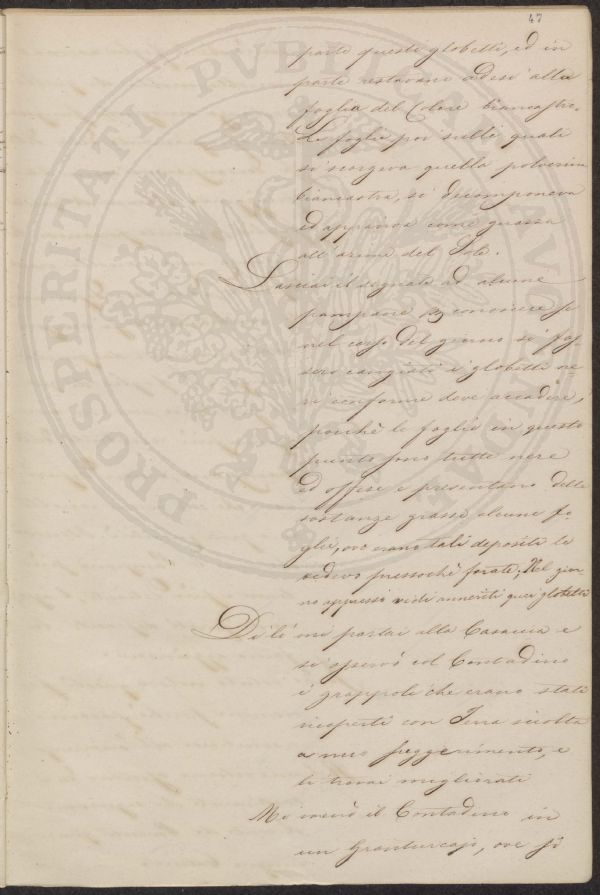 47
parte questi globetti, ed in
parte restavano adesi alla
foglia del Colore biancastro.
Le foglie poi sulle quali
si scorgeva quella polverina
biancastra, si decomponeva
ed appariva come grassa
all'azione del Sole.
Lasciai il segnale ad alcune
pampane per conoscere se
nel corso del giorno si fos-
sero cangiati i globetti ne-
ri conforme deve accadere,
poichè le foglie in questo
punto sono tutte nere
ed offese e presentano delle
sostanze grasse alcune fo-
glie, ove erano tali deposita le
vedevo pressochè forate; Nel gior-
no appresso vidi anneriti quei globetti
Di lì mi portai alla Casaccia e
si osservò col Contadino
i grappoli che erano stati
ricoperti con Terra sciolta
a mio suggerimento, e
li trovai migliorati
Mi menò il Contadino in
un Granturcajo, ove si
PROSPERITATI PVBLICAE AVGENDAE